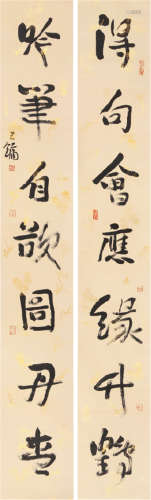 得句會應緣竹鶴
吟筆自欲圖丹青
王鏞